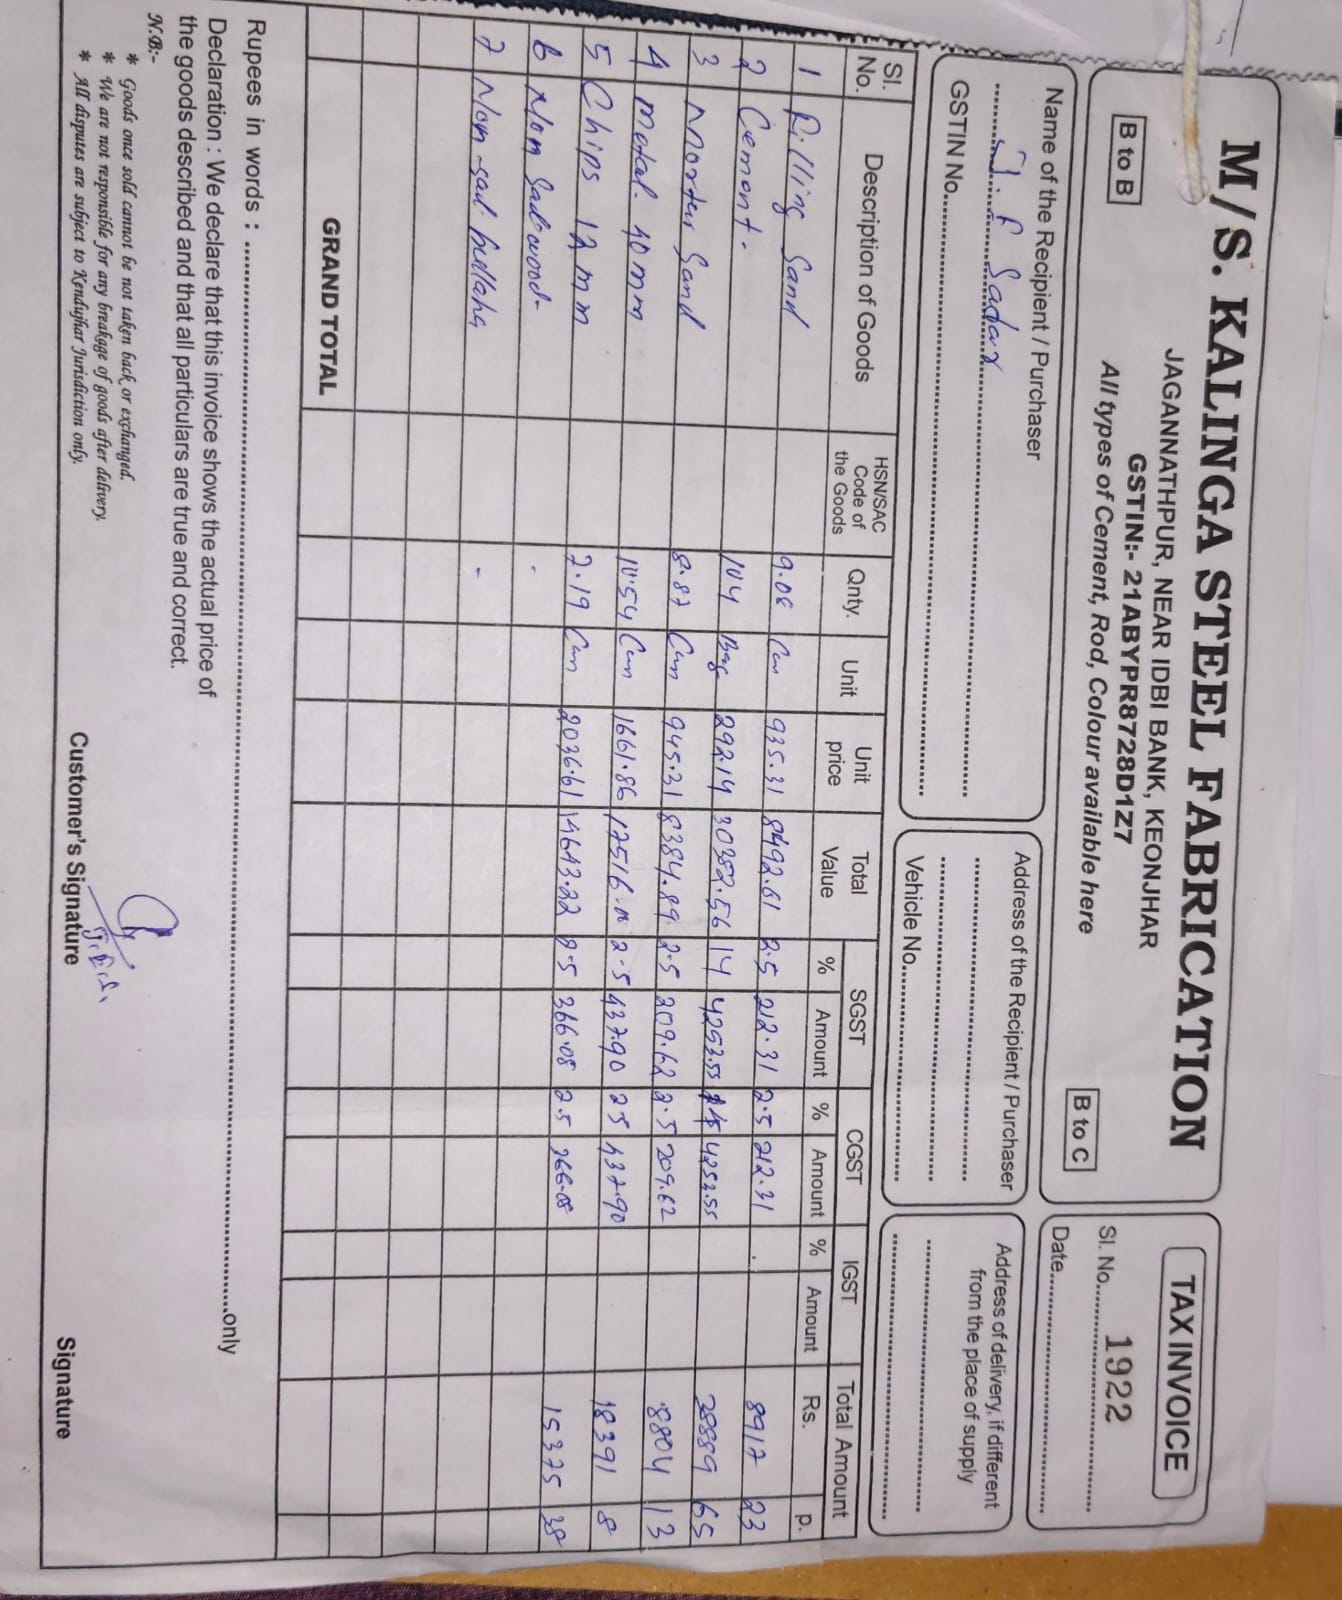 M/S. KALINGA STEEL FABRICATION
JAGANNATHPUR, NEAR IDBI BANK, KEONJHAR
GSTIN:- 21ABYPR8728D1Z7
All types of Cement, Rod, Colour available here
B to B
B to C
TAX INVOICE
Sl. No. 1922
Date
Name of the Recipient / Purchaser
GSTIN No.
Address of the Recipient / Purchaser
Vehicle No.
Address of delivery, if different
from the place of supply
Sl. No. Description of Goods HSN/SAC Code of the Goods Qnty. Unit Unit price Total Value SGST % Amount CGST % Amount IGST % Amount Total Amount Rs. p.
1 Filling Sand 9.08 Cum 935.31 8492.61 2.5 212.31 2.5 212.31 8917 23
2 Cement. 104 Bag 292.14 30382.56 14 4253.55 14 4253.55 38889 65
3 Morter Sand 8.87 Cum 945.31 8384.89 2.5 209.62 2.5 209.62 8804 13
4 Metal 40 mm 10.54 Cum 1661.86 17516.00 2.5 437.90 2.5 437.90 18391 8
5 Chips 12 mm 7.19 Cum 2036.61 14643.22 2.5 366.08 2.5 366.08 15375 38
6 Non Sal wood - -
7 Non-sal ballaha -
GRAND TOTAL
Rupees in words : only
Declaration : We declare that this invoice shows the actual price of
the goods described and that all particulars are true and correct.
N.B:-
* Goods once sold cannot be not taken back or exchanged.
* We are not responsible for any breakage of goods after delivery.
* All disputes are subject to Kendujhar Jurisdiction only.
Customer's Signature
Signature